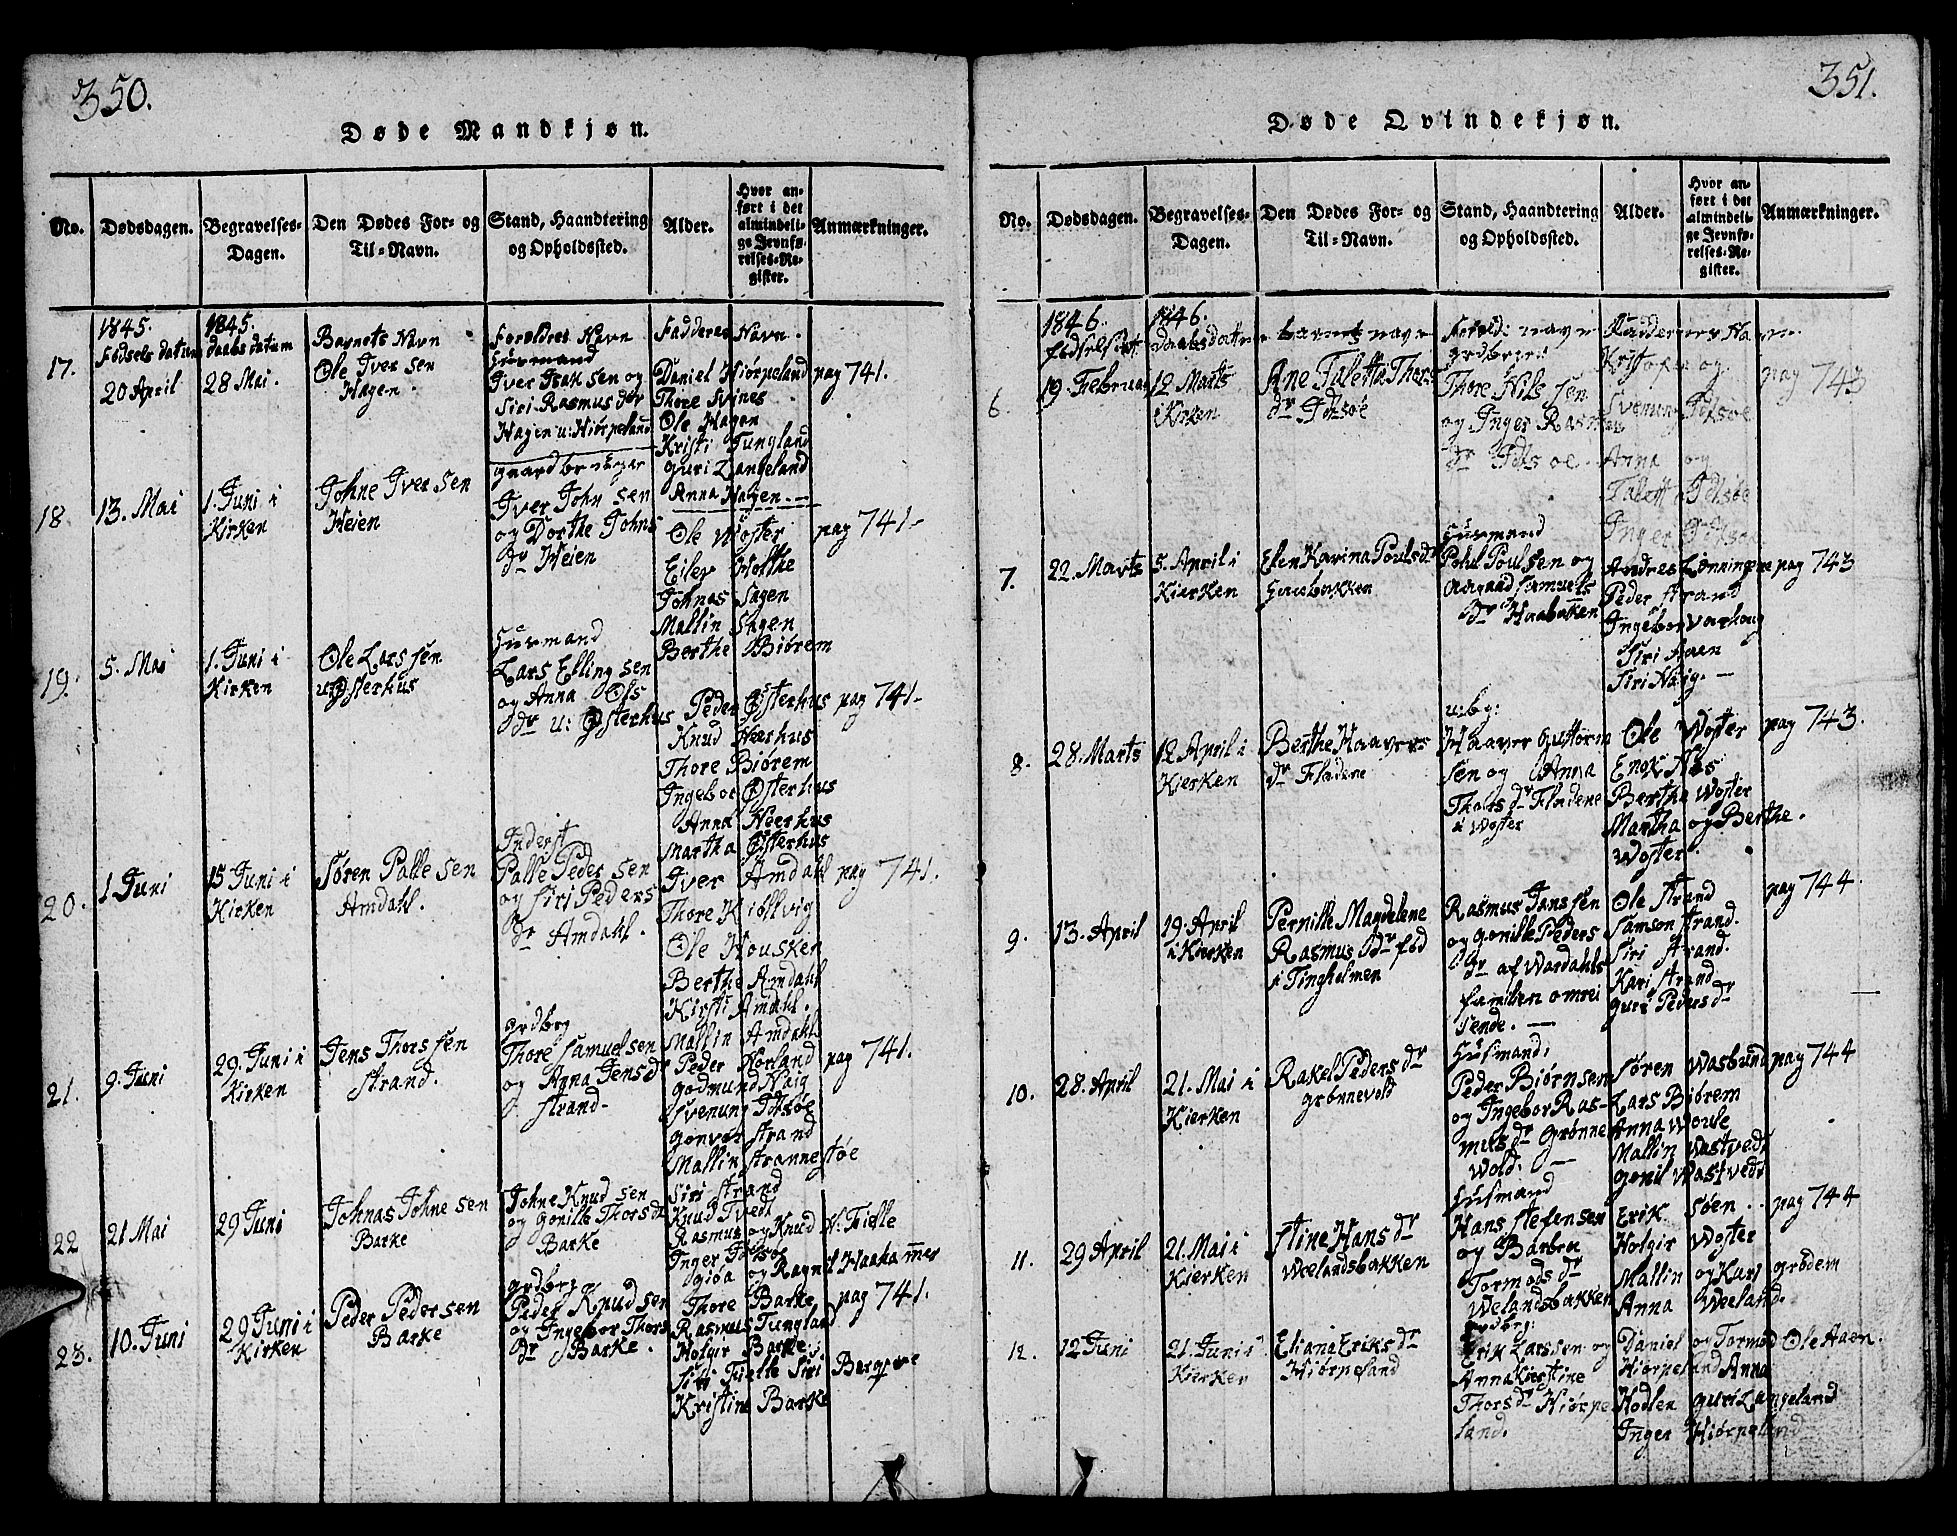 350.
Døde Mandkjøn.
No.
Dødsdagen.
Begravelses-
Dagen.
Den Dødes For- og
Til-Navn.
Stand, Haandtering
og Opholdssted.
Alder.
Hvor an-
ført i det
almindeli-
ge Jevnfø-
relses-Re-
gister.
Anmærkninger.
17.
1845.
Fødsels datum
20 April
1845.
daabs datum
28 Mai.
Barnets Navn
Ole Iver sen
Hagen.
Forældres Navn
Huusmand
Iver Isak sen og
Siri Rasmus dr
Hagen u: Hiørpeland
Fadderes Navn.
Daniel Hiørpeland
Thore Svines
Ole Hagen
Kristi Tungland
Guri Langeland
Anna Hagen.
pag 741.
18
13. Mai
1. Juni i
Kirken
Johne Iver sen
Heien
gaardbruger
Iver John sen
og Dorthe Johns
dr Heien
Ole Woster
Eiler Holthe
Johnas Sagen
Mallin Sagen
Berthe Biørem
pag 741-
19.
5. Mai
1. Juni i
Kirken
Ole Lars sen
u: Østerhus
Huusmand
Lars Elling sen
og Anna Ols
dr u: Østerhus
Peder Østerhus
Knud Neerhus
Thore Biørem
Ingebor Østerhus
Anna Neerhus
Martha Østerhus
pag 741-
20.
1. Juni
15 Juni i
Kirken
Søren Palle sen
Amdahl.
Inderst
Palle Peder sen
og Siri Peders
dr Amdahl.
Iver Amdahl
Thore Kiøllvig
Ole Housken
Berthe Amdahl
Kirsti Amdahl.
Mallin Amdahl
pag 741.
21.
9. Juni
29. Juni i
Kirken
Jens Thors sen
Strand.
grdbrg
Thore Samuelsen
og Anna Jensdr
Strand-
Peder Norland
Godmund Haig
Svenung Idsøe
Gonvor Strand
Mallin Strannestøe
Siri Strand
pag 741.
22
21 Mai
29 Juni
Johnas Johne sen
Barke
Johne Knud sen
og Gonille Thorsdr
Barke
Knud Tvedt
Rasmus og Knud N: Tielle
Inger Idsøe
Giøa og Ragnil Haahammer
23.
10. Juni
29 Juni i
Kirken
Peder Peder sen
Barke
grdbrg
Peder Knud sen
og Ingebor Thors
dr Barke.
Thore Barke
Rasmus Tungland
Holgir Barke.
Siri Tielle Siri Bergeve
Kristine Barke
pag 741.
351.
Døde Qvindekjøn.
No.
Dødsdagen.
Begravelses-
Dagen.
Den Dødes For- og
Til-Navn.
Stand, Haandtering
og Opholdssted.
Alder.
Hvor an-
ført i det
almindeli-
ge Jevnfø-
relses-Re-
gister.
Anmærkninger.
6.
1846.
fødselsdat
19. Februar
1846.
Daabsdatum
12 Marts
i Kirken
barnets navn
Ane Taletta Thors
dr Idsøe
Foreld: navn
grdbrger:
Thore Nils sen
og Inger Rasmus
dr Idsøe.
Faddernes Navn
Kristofer og
Svenung Idsøe
Anna og
Talett Idsøe
Inger Idsøe
pag 743
7.
22. Marts
5. April i
Kierken
Elen Karina Poulsdr
Haabakken
Huusmand
Poul Poulsen og
Aagaad Samuels
dr Haabakken
Andres Lønningen
Peder Strand
Ingebor Varhoug
Siri Aaen
Siri Haig. -
pag 743
8.
28. Marts
12 April i
Kierken
Berthe Haavers
dr Fladene
u: bg:
Haaver Guttorm
sen og Anna
Thors dr Fladene
i Woster
Ole Woster
Enok Nøs
Bertha Woster
Martha og Berthe.
Woster.
pag 743.
9.
13. April
19. April
i Kierken
Pernille Magdelene
Rasmus dr fød
i Tingholmen
Rasmus Jans sen
og Gonille Peders
dr af Wardahls
familien omrei
sende. -
Ole Strand
Samson Strand.
Siri Strand.
Kari Strand
Guri Pedersdr
pag 744
10.
28. April
21. Mai i
Kierken
Rakel Peders dr
Grønnevold
Husmand:
Peder Biørnsen
og Ingebor Ras-
mus dr Grønne
Wold. -
Søren Wasbund
Lars Biørem
Anna Woule
Mallin Wastvedt
Gonil Wastvedt
pag 744
11.
29 April
21. Mai i
Kierken
Stine Hans dr
Weelandsbakken
Husmand
Hans Stefensen
og Barbru
Tormods dr
Welandsbakken
Erik Søen.
Holgir Woster
Mallin og Kari Grødem
Anna Weeland.
pag 744
12.
12 Juni
21. Juni i
Kierken
Eliana Eriks dr
Hiørpeland
grdbrg:
Erik Larssen og
Anna Kierstine
Thorsdr Hiørpe
land.
Daniel og Tormod Ole Aaen.
Hiørpeland Anna
Hodlen Guri Langeland
Inger Hiørpeland